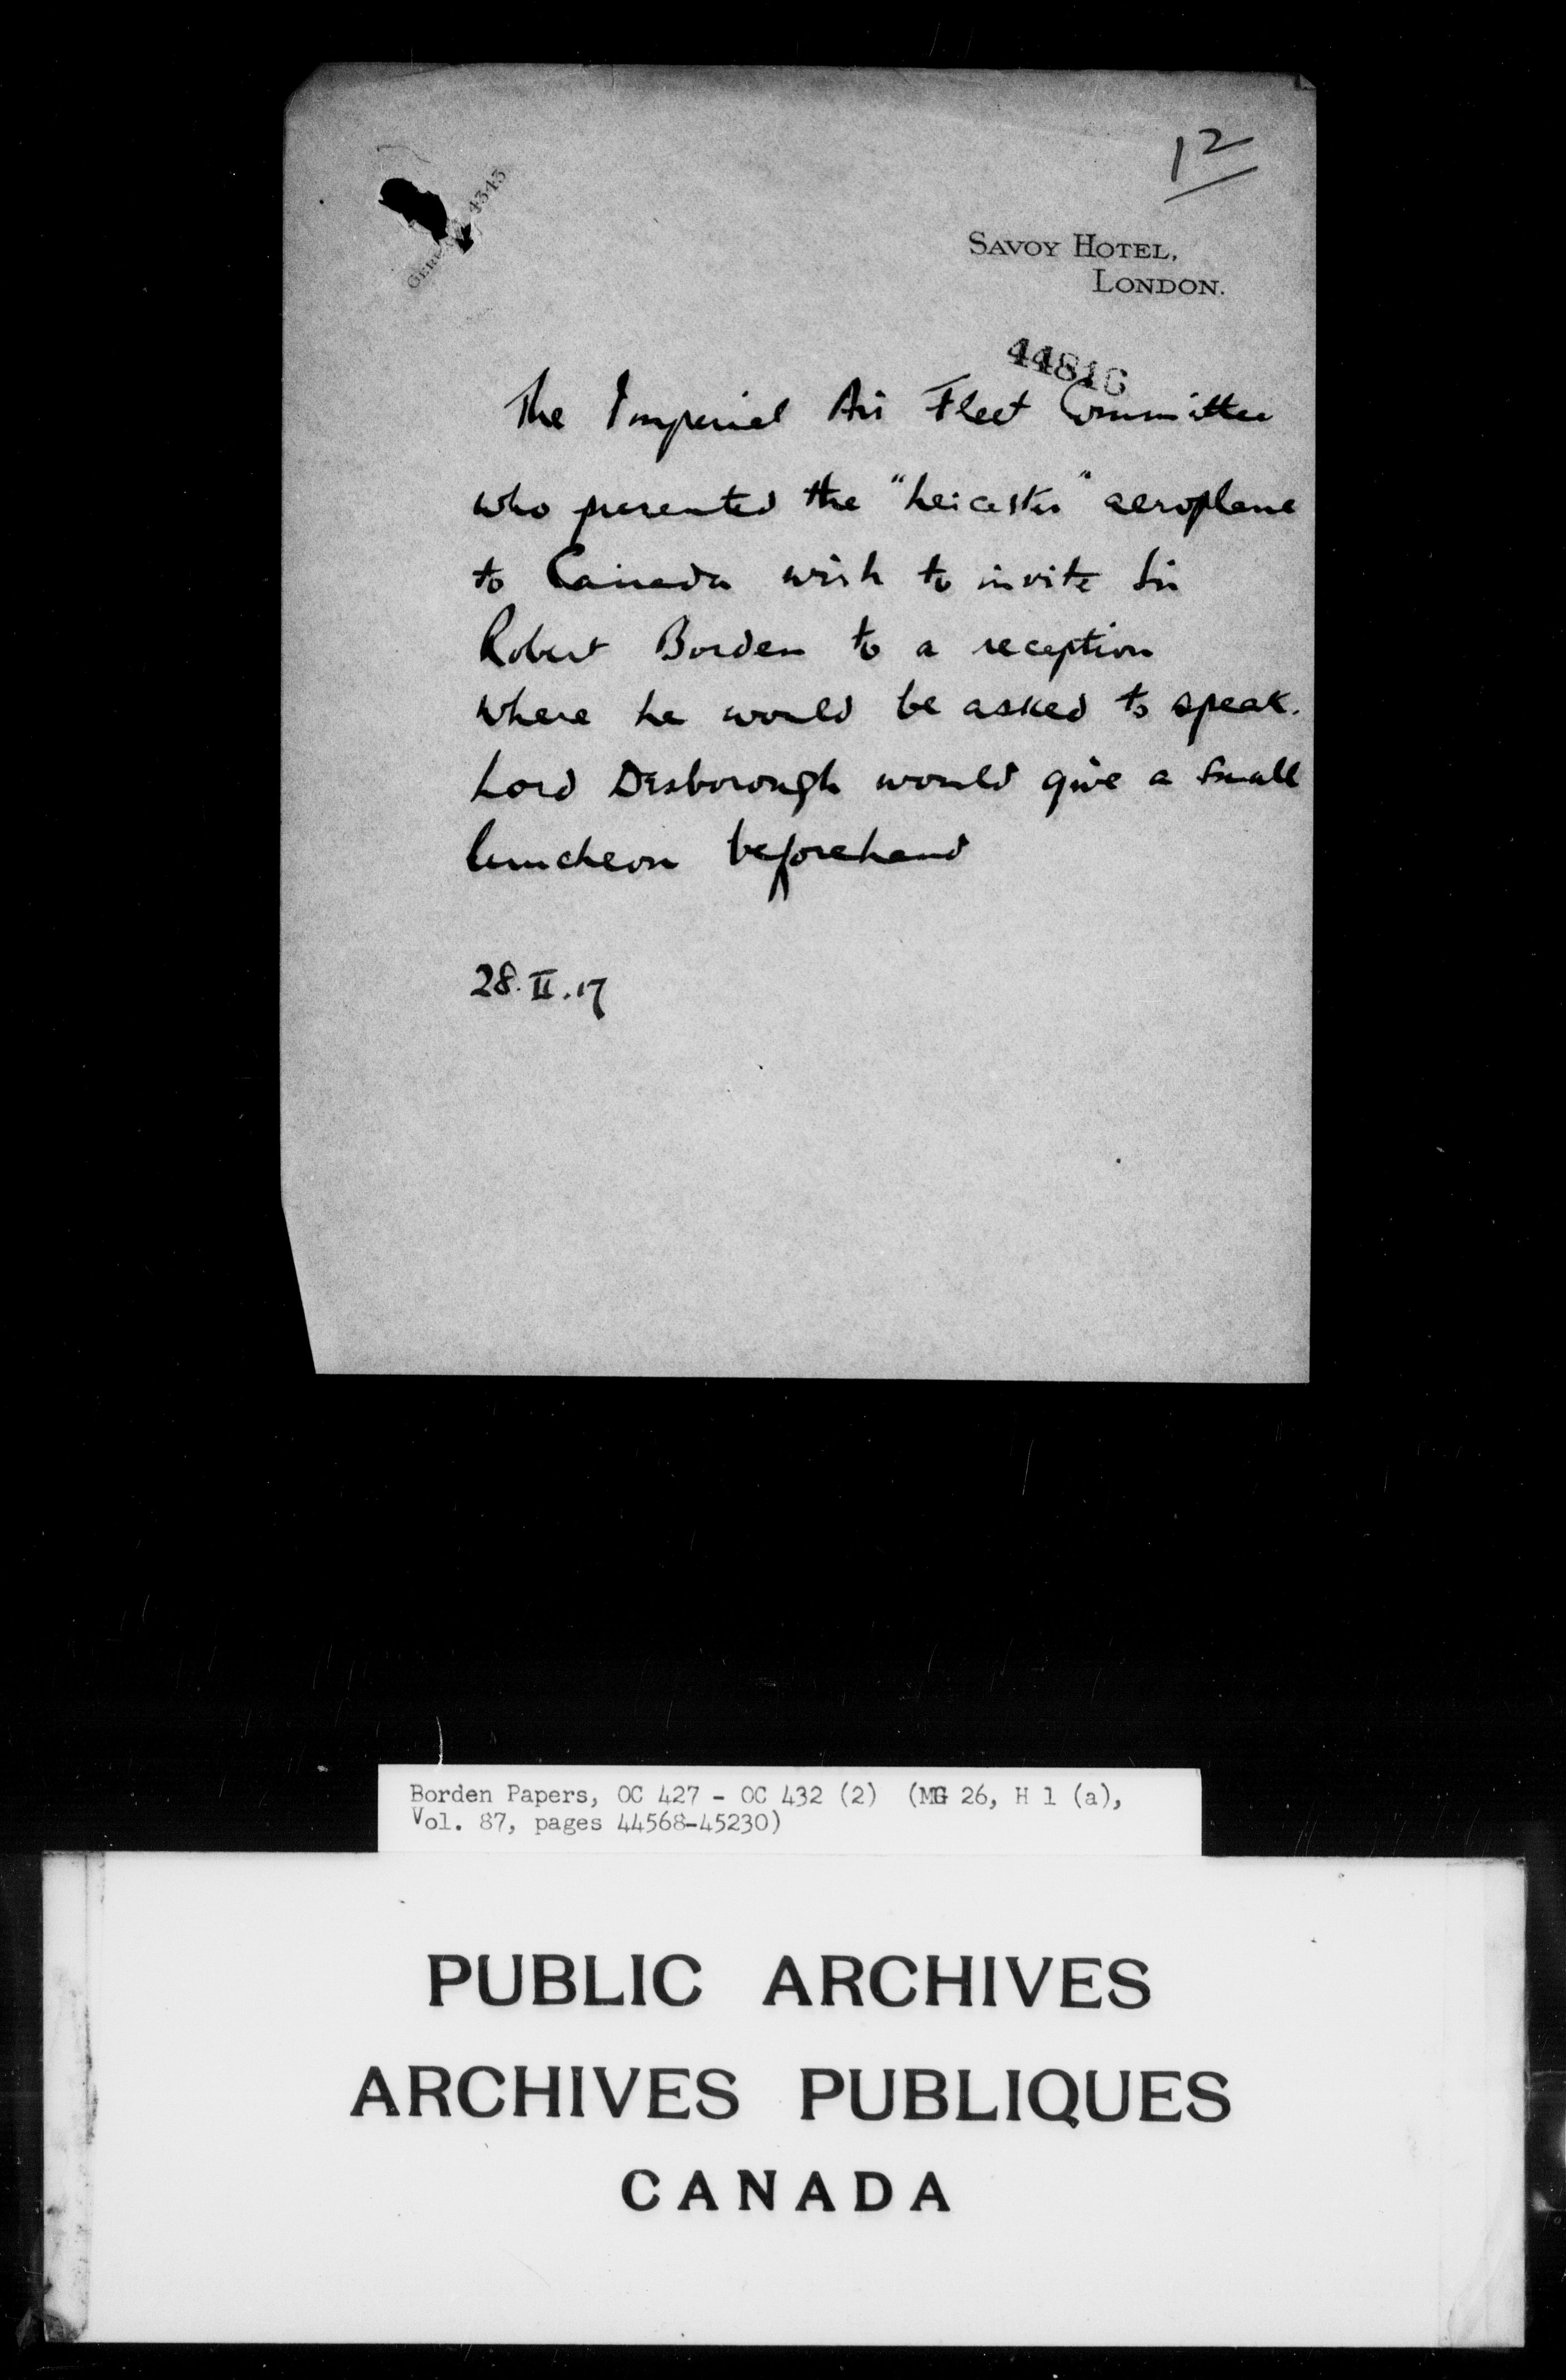 12
4343
SAVOY HOTEL,
LONDON.
44816
The Imperial Air Fleet Committee
who presented the "Leicester" aeroplane
to Canada wish to invite Sir
Robert Borden to a reception
where he would be asked to speak.
Lord Desborough would give a small
luncheon beforehand
28.II.17
Borden Papers, OC 427 - OC 432 (2) (MG 26, H 1 (a),
Vol. 87, pages 44568-45230)
PUBLIC ARCHIVES
ARCHIVES PUBLIQUES
CANADA